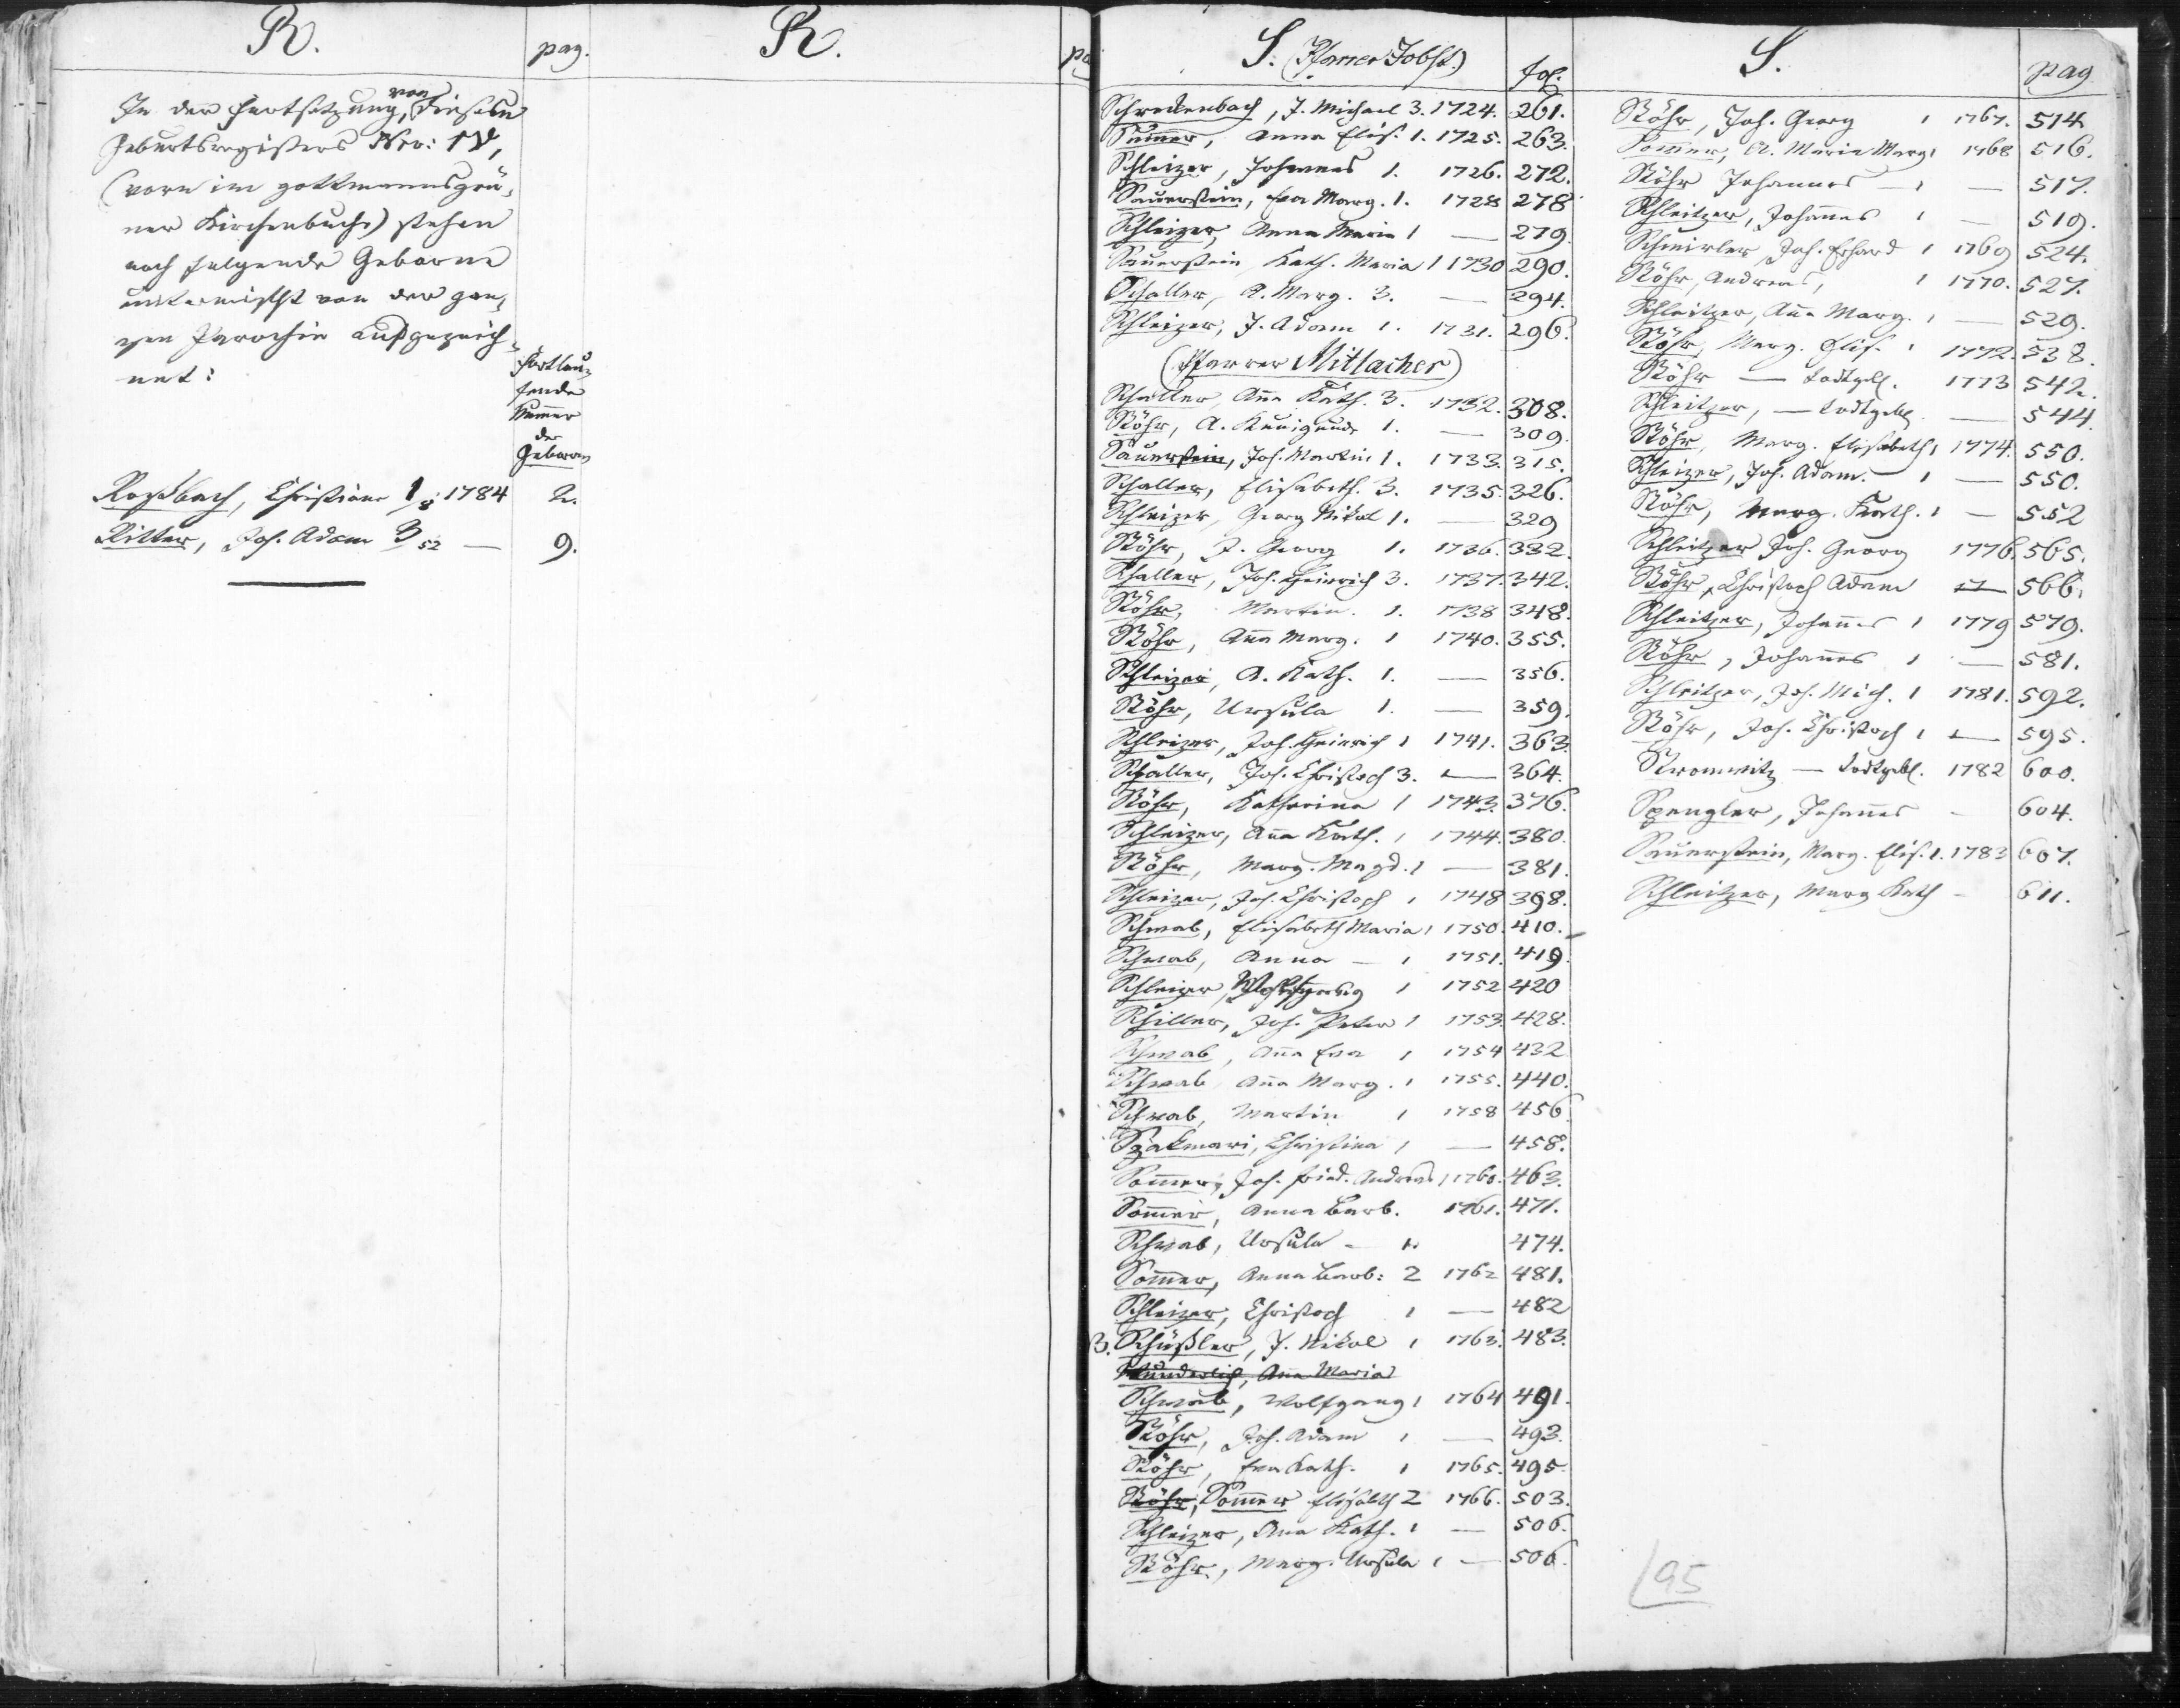 R.
pag.
In der Fortsetzung von diesem
Geburtsregisters Nro: IV,
(vorn im gottmannsgrü-
ner Kirchenbuche) stehen
noch folgende Geborne
untermischt von der gan-
zen Parochie aufgezeich-
net:
Fortlau-
fende
Numer
der
Gebornen
Roßbach, Christiane 1/8 1784 2.
Ritter, Joh. Adam 3/52 — 9.
R.
pa
S. (Pfarrer Jobst.)
fol.
Schreckenbach, J. Michael 3. 1724. 261.
Sumer, Anna Elis. 1. 1725. 263.
Schleizer, Johannes 1. 1726. 272.
Sauerstein, Eva Marg. 1. 1728 278
Schleizer, Anna Maria 1 — 279.
Sauerstein Kath. Maria 1 1730 290.
Schaller, A. Marg. 3. — 294.
Schleizer, J. Adam 1. 1731. 296.
(Pfarrer Mitlacher)
Schaller, Aña Kath. 3. 1732. 308.
Stöhr, A. Kunigunde 1. — 309.
Sauerstein, Joh. Martin 1. 1733. 315.
Schaller, Elisabeth. 3. 1735. 326.
Schleizer, Georg Nikol 1. — 329
Stöhr, J. Georg 1. 1736. 332.
Schaller, Joh. Heinrich 3. 1737. 342.
Stöhr, Martin. 1. 1738 348.
Stöhr, Aña Marg. 1 1740. 355.
Schleizer, A. Kath. 1. — 356.
Stöhr, Ursula 1. — 359.
Schleizer, Joh. Heinrich 1 1741. 363.
Schaller, Joh. Christoph 3. — 364.
Stöhr, Katharina 1 1743. 376.
Schleizer, Aña Kath. 1 1744. 380.
Stöhr, Marg. Magd. 1 — 381.
Schleizer, Joh. Christoph 1 1748 398.
Schwab, Elisabeth Maria 1 1750. 410.
Schwab, Anna — 1 1751. 419.
Schleizer, 1 1752 420
Schiller, Joh. Peter 1 1753. 428.
Schwab, Aña Eva 1 1754 432
Schwab Aña Marg. 1 1755. 440.
Schwab, Martin 1 1758 456
Szakmari, Christina 1 — 458.
Somer, Joh. Fried. Andreas 1 1760. 463.
Somer, Anna Barb. 1761. 471.
Schwab, Ursula — 1. 474.
Somer, Anna Barb: 2 1762 481.
Schleizer, Christoph 1 — 482
B. Schüßler, J. Nikol 1 1763. 483.
Wunderlich, Aña Maria
Schwab, Wolfgang 1 1764 491.
Stöhr, Joh. Adam 1 — 493.
Stöhr, Eva Kath. 1 1765. 495.
Stöhr, Somer Elisabeth 2 1766. 503.
Schleizer, Aña Kath. 1 — 506.
Stöhr, Marg. Ursula 1 — 506.
S.
pag
Stöhr, Joh. Georg 1 1767. 514.
Somer, A. Maria Marg. 1 1768 516.
Stöhr Johannes — 1 — 517.
Schleitzer, Johañes 1 — 519.
Schmirler, Joh. Erhard 1 1769 524.
Stöhr, Andreas, 1 1770. 527.
Schleitzer, Aña Marg. 1 — 529.
Stöhr, Marg. Elis. 1 1772. 538.
Stöhr — todtgeb. 1773 542.
Schleitzer, — todtgeb. — 544.
Stöhr, Marg. Elisabeth 1 1774. 550.
Schleizer, Joh. Adam. 1 — 550.
Stöhr, Marg. Kath. 1 — 552
Schleitzer Joh. Georg 1776. 565.
Stöhr, Christoph Adam — 566.
Schleitzer, Johañes 1 1779 579.
Stöhr, Johañes 1 — 581.
Schleitzer, Joh. Mich. 1 1781. 592.
Stöhr, Joh. Christoph 1 — 595.
Stromwitz — todtgeb. 1782 600.
Spengler, Johañes - 604.
Sauerstein, Marg. Elis. 1. 1783 607.
Schleitzer, Marg Kath - 611.
95